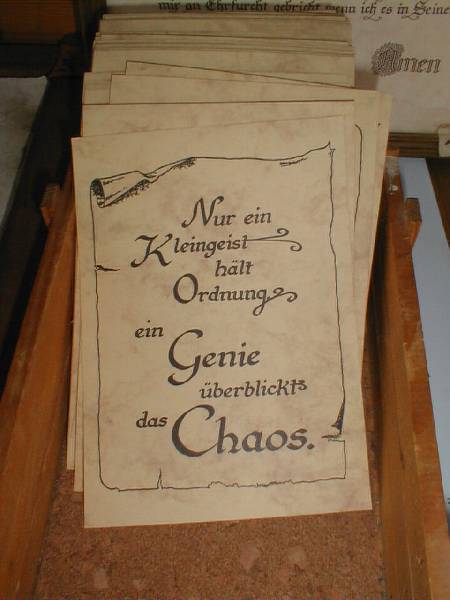 mir an Ehrfurcht gebricht wenn ich es in Seine
Amen
Nur ein
Kleingeist
hält
Ordnung
ein
Genie
überblickt's
das
Chaos.